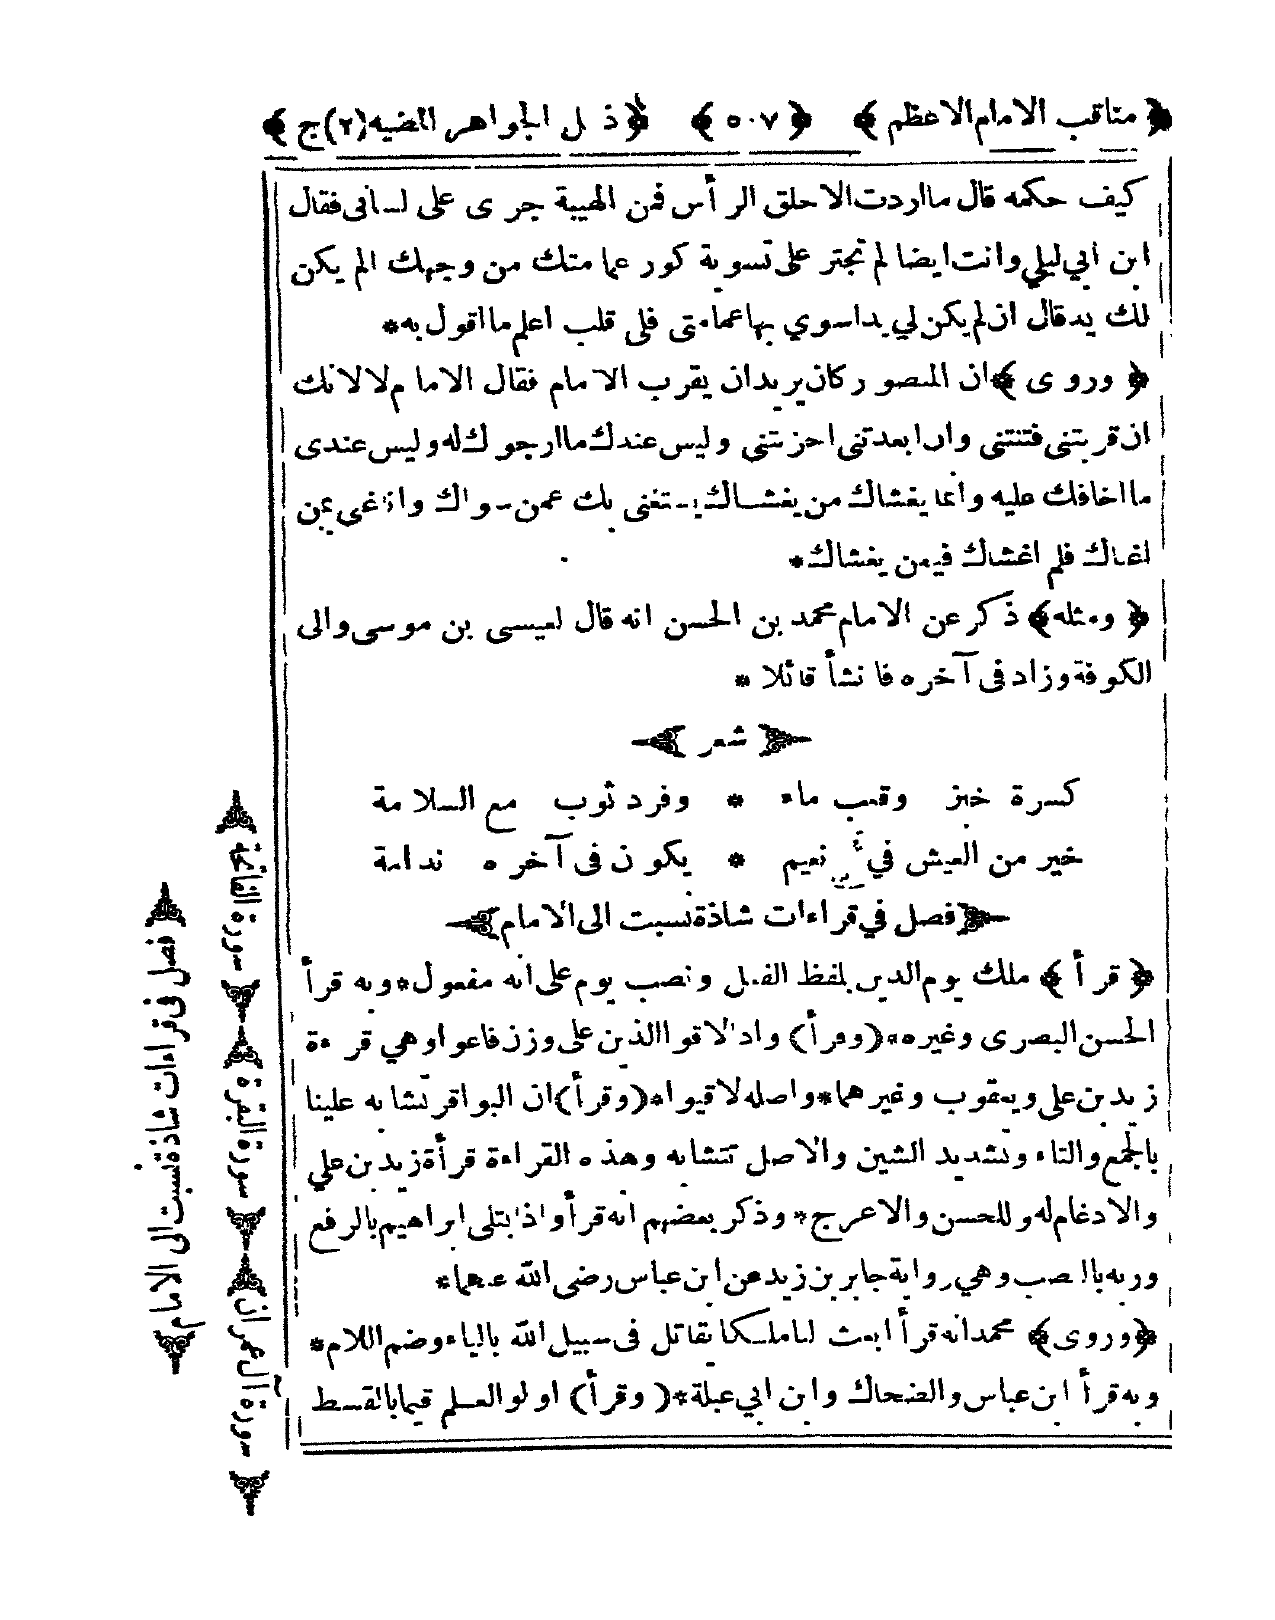 ﴿ مناقب الامام الاعظم ﴾ ﴿ ٥٠٧ ﴾ ﴿ ذيل الجواهر المضيه (٢) ج ﴾
كيف حكمه قال ما اردت الا حلق الرأس فمن الهيبة جرى على لسانى فقال
ابن ابي ليلي وانت ايضا لم تجتر على تسوية كور عمامتك من وجهك الم يكن
لك يد قال ان لم يكن لي يد اسوي بها عمامتى فلى قلب اعلم ما اقول به *
﴿ وروى ﴾ ان المنصور كان يريد ان يقرب الامام فقال الامام لا لانك
ان قربتنى فتنتنى وان ابعدتنى احزنتنى وليس عندك ما ارجوك له وليس عندى
ما اخافك عليه وانما يغشاك من يغشاك ليستغنى بك عمن سواك وانا غني بمن
اغناك فلم اغشاك فيمن يغشاك *
﴿ ومثله ﴾ ذكر عن الامام محمد بن الحسن انه قال لعيسى بن موسى والى
الكوفة وزاد فى آخره فانشأ قائلا *
﴿ شعر ﴾
كسرة خبز وقعب ماء * وفرد ثوب مع السلامة
خير من العيش في نعيم * يكون فى آخره ندامة
﴿ فصل في قراءات شاذة نسبت الى الامام ﴾
﴿ قرأ ﴾ ملك يوم الدين بلفظ الفعل ونصب يوم على انه مفعول * وبه قرأ
الحسن البصرى وغيره * (وقرأ) واذ لاقوا الذين على وزن فاعوا وهي قرءة
زيد بن علي ويعقوب وغيرهما * واصله لاقيوا * (وقرأ) ان البواقر تشابه علينا
بالجمع والتاء وتشديد الشين والاصل تتشابه وهذه القراءة قرأة زيد بن علي
والادغام له وللحسن والاعرج * وذكر بعضهم انه قرأ واذ ابتلى ابراهيم بالرفع
وربه بالنصب وهي رواية جابر بن زيد عن ابن عباس رضى الله عنهما *
﴿ وروى ﴾ محمد انه قرأ ابعث لنا ملكا يقاتل فى سبيل الله بالياء وضم اللام *
وبه قرأ ابن عباس والضحاك وابن ابي عبلة * (وقرأ) اولو العلم قيما بالقسط
﴿ سورة الفاتحة ﴾ ﴿ سورة البقرة ﴾ ﴿ سورة آل عمران ﴾
﴿ فصل فى قراءات شاذة نسبت الى الامام ﴾